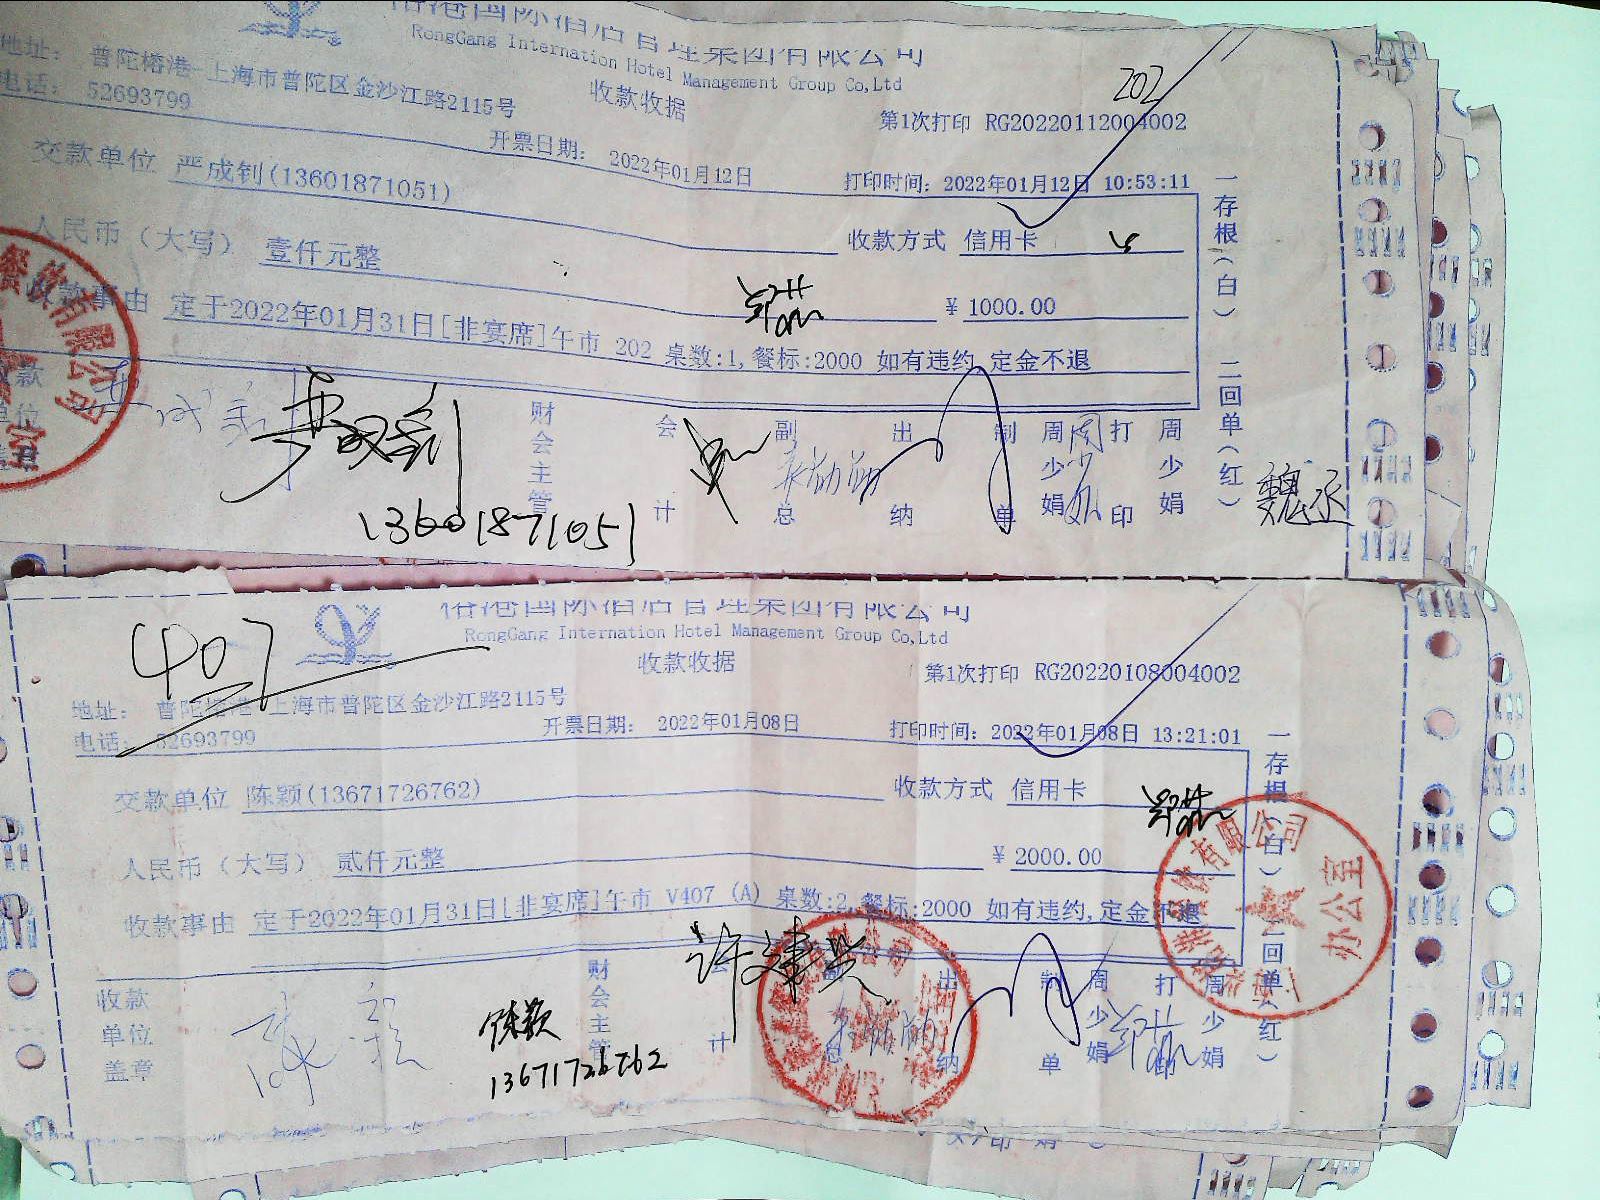 榕港国际酒店管理集团有限公司
RongGang International Hotel Management Group Co,Ltd
收款收据
202
地址: 普陀榕港-上海市普陀区金沙江路2115号
第1次打印 RG20220112004002
电话: 52693799
开票日期: 2022年01月12日
打印时间: 2022年01月12日 10:53:11
交款单位 严成钊(13601871051)
收款方式 信用卡
人民币（大写） 壹仟元整
¥ 1000.00
收款事由 定于2022年01月31日[非宴席]午市 202 桌数:1,餐标:2000 如有违约,定金不退
餐饮有限公司
一存根(白) 二回单(红)
收款单位盖章
财会主管
会计
副总
出纳
制单
周少娟
打印
周少娟
严成钊
13601871051
魏丞
榕港国际酒店管理集团有限公司
RongGang International Hotel Management Group Co,Ltd
收款收据
407
第1次打印 RG20220108004002
地址: 普陀榕港-上海市普陀区金沙江路2115号
电话: 52693799
开票日期: 2022年01月08日
打印时间: 2022年01月08日 13:21:01
交款单位 陈颖(13671726762)
收款方式 信用卡
人民币（大写） 贰仟元整
¥ 2000.00
收款事由 定于2022年01月31日[非宴席]午市 V407 (A) 桌数:2,餐标:2000 如有违约,定金不退
有限公司
办公室
一存根(白) 二回单(红)
收款单位盖章
财会主管
会计
副总
出纳
制单
周少娟
打印
周少娟
许建兴
陈颖
13671726762